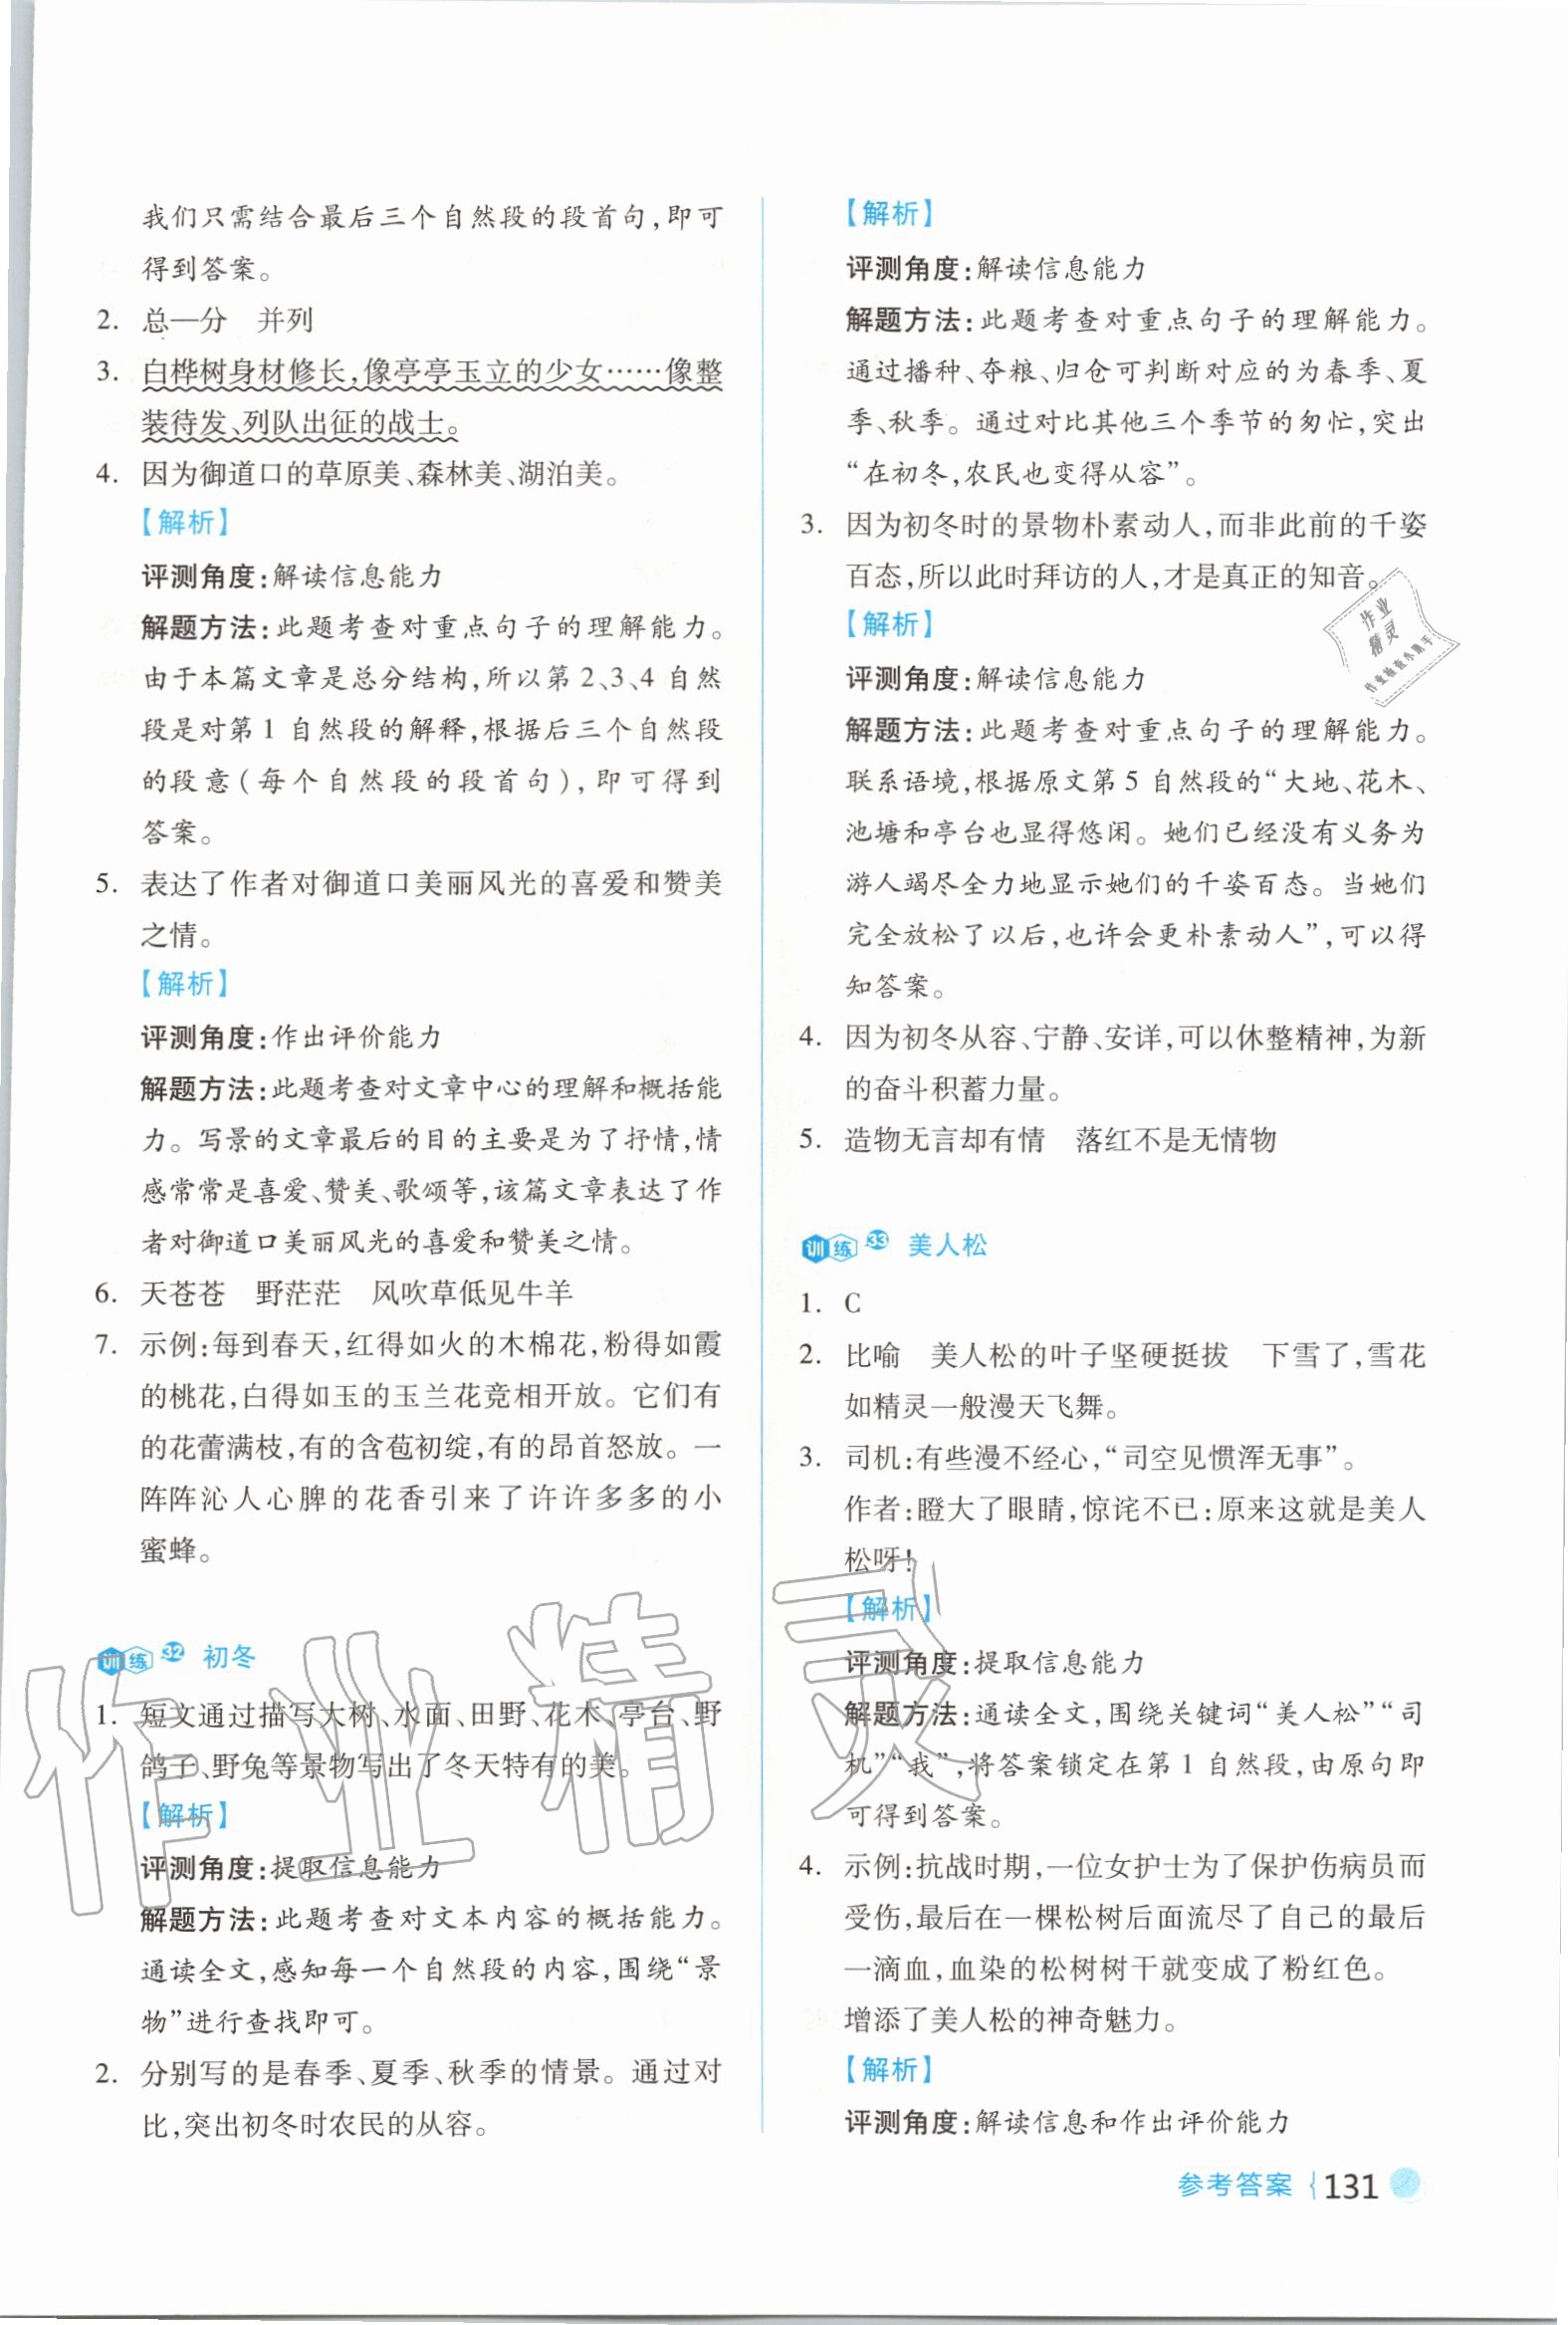 我们只需结合最后三个自然段的段首句,即可
得到答案。
2. 总—分 并列
3. 白桦树身材修长,像亭亭玉立的少女……像整
装待发、列队出征的战士。
4. 因为御道口的草原美、森林美、湖泊美。
【解析】
评测角度:解读信息能力
解题方法:此题考查对重点句子的理解能力。
由于本篇文章是总分结构,所以第2、3、4自然
段是对第1自然段的解释,根据后三个自然段
的段意(每个自然段的段首句),即可得到
答案。
5. 表达了作者对御道口美丽风光的喜爱和赞美
之情。
【解析】
评测角度:作出评价能力
解题方法:此题考查对文章中心的理解和概括能
力。写景的文章最后的目的主要是为了抒情,情
感常常是喜爱、赞美、歌颂等,该篇文章表达了作
者对御道口美丽风光的喜爱和赞美之情。
6. 天苍苍 野茫茫 风吹草低见牛羊
7. 示例:每到春天,红得如火的木棉花,粉得如霞
的桃花,白得如玉的玉兰花竞相开放。它们有
的花蕾满枝,有的含苞初绽,有的昂首怒放。一
阵阵沁人心脾的花香引来了许许多多的小
蜜蜂。
训练32 初冬
1. 短文通过描写大树、水面、田野、花木、亭台、野
鸽子、野兔等景物写出了冬天特有的美。
【解析】
评测角度:提取信息能力
解题方法:此题考查对文本内容的概括能力。
通读全文,感知每一个自然段的内容,围绕“景
物”进行查找即可。
2. 分别写的是春季、夏季、秋季的情景。通过对
比,突出初冬时农民的从容。
【解析】
评测角度:解读信息能力
解题方法:此题考查对重点句子的理解能力。
通过播种、夺粮、归仓可判断对应的为春季、夏
季、秋季。通过对比其他三个季节的匆忙,突出
“在初冬,农民也变得从容”。
3. 因为初冬时的景物朴素动人,而非此前的千姿
百态,所以此时拜访的人,才是真正的知音。
【解析】
评测角度:解读信息能力
解题方法:此题考查对重点句子的理解能力。
联系语境,根据原文第5自然段的“大地、花木、
池塘和亭台也显得悠闲。她们已经没有义务为
游人竭尽全力地显示她们的千姿百态。当她们
完全放松了以后,也许会更朴素动人”,可以得
知答案。
4. 因为初冬从容、宁静、安详,可以休整精神,为新
的奋斗积蓄力量。
5. 造物无言却有情 落红不是无情物
训练33 美人松
1. C
2. 比喻 美人松的叶子坚硬挺拔 下雪了,雪花
如精灵一般漫天飞舞。
3. 司机:有些漫不经心,“司空见惯浑无事”。
作者:瞪大了眼睛,惊诧不已:原来这就是美人
松呀!
【解析】
评测角度:提取信息能力
解题方法:通读全文,围绕关键词“美人松”“司
机”“我”,将答案锁定在第1自然段,由原句即
可得到答案。
4. 示例:抗战时期,一位女护士为了保护伤病员而
受伤,最后在一棵松树后面流尽了自己的最后
一滴血,血染的松树树干就变成了粉红色。
增添了美人松的神奇魅力。
【解析】
评测角度:解读信息和作出评价能力
参考答案 131
作业精灵
作业
精灵
作业检查小助手